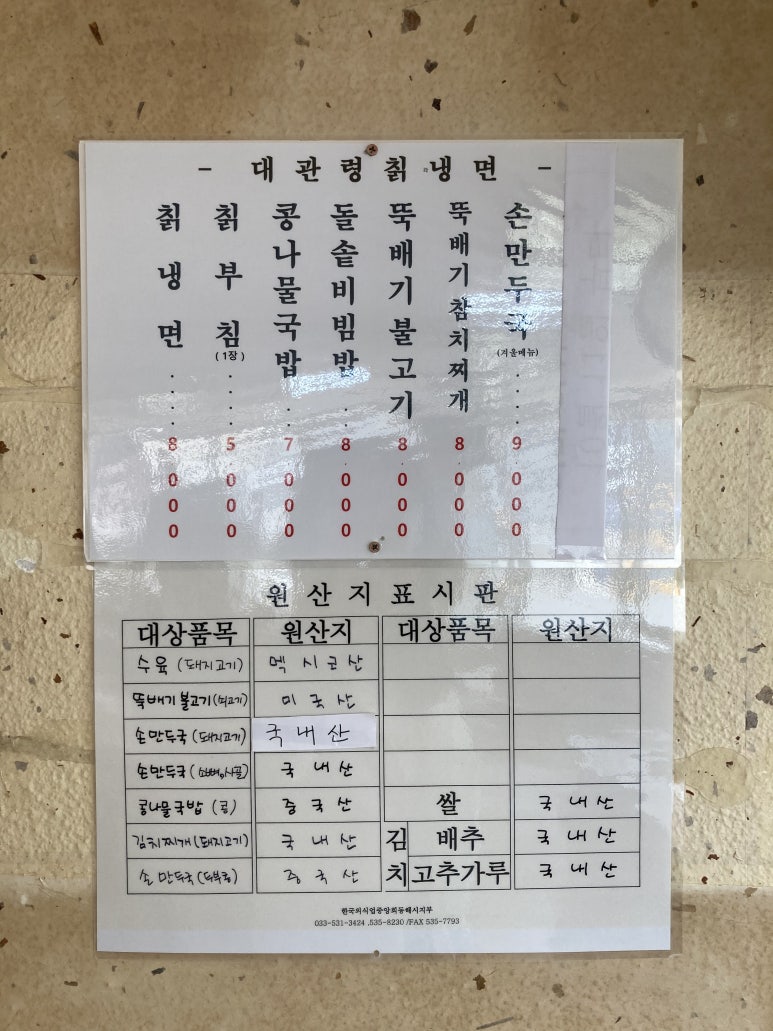 - 대관령칡냉면 -
칡냉면....8000
칡부침(1장)....5.000
콩나물국밥..7000
돌솥비빔밥..8.000
뚝배기불고기8.000
뚝배기참치찌개8.000
손만두국(겨울메뉴)....9.000
원산지표시판
대상품목 원산지 대상품목 원산지
수육(돼지고기) 멕시코산
뚝배기불고기(쇠고기) 미국산
손만두국(돼지고기) 국내산
손만두국 국내산
콩나물국밥(콩) 중국산 쌀 국내산
김치찌개(돼지고기) 국내산 김치 배추 국내산
손만두국(두부콩) 중국산 고추가루 국내산
한국외식업중앙회동해시지부
033-531-3424 ,535-8230 /FAX 535-7793